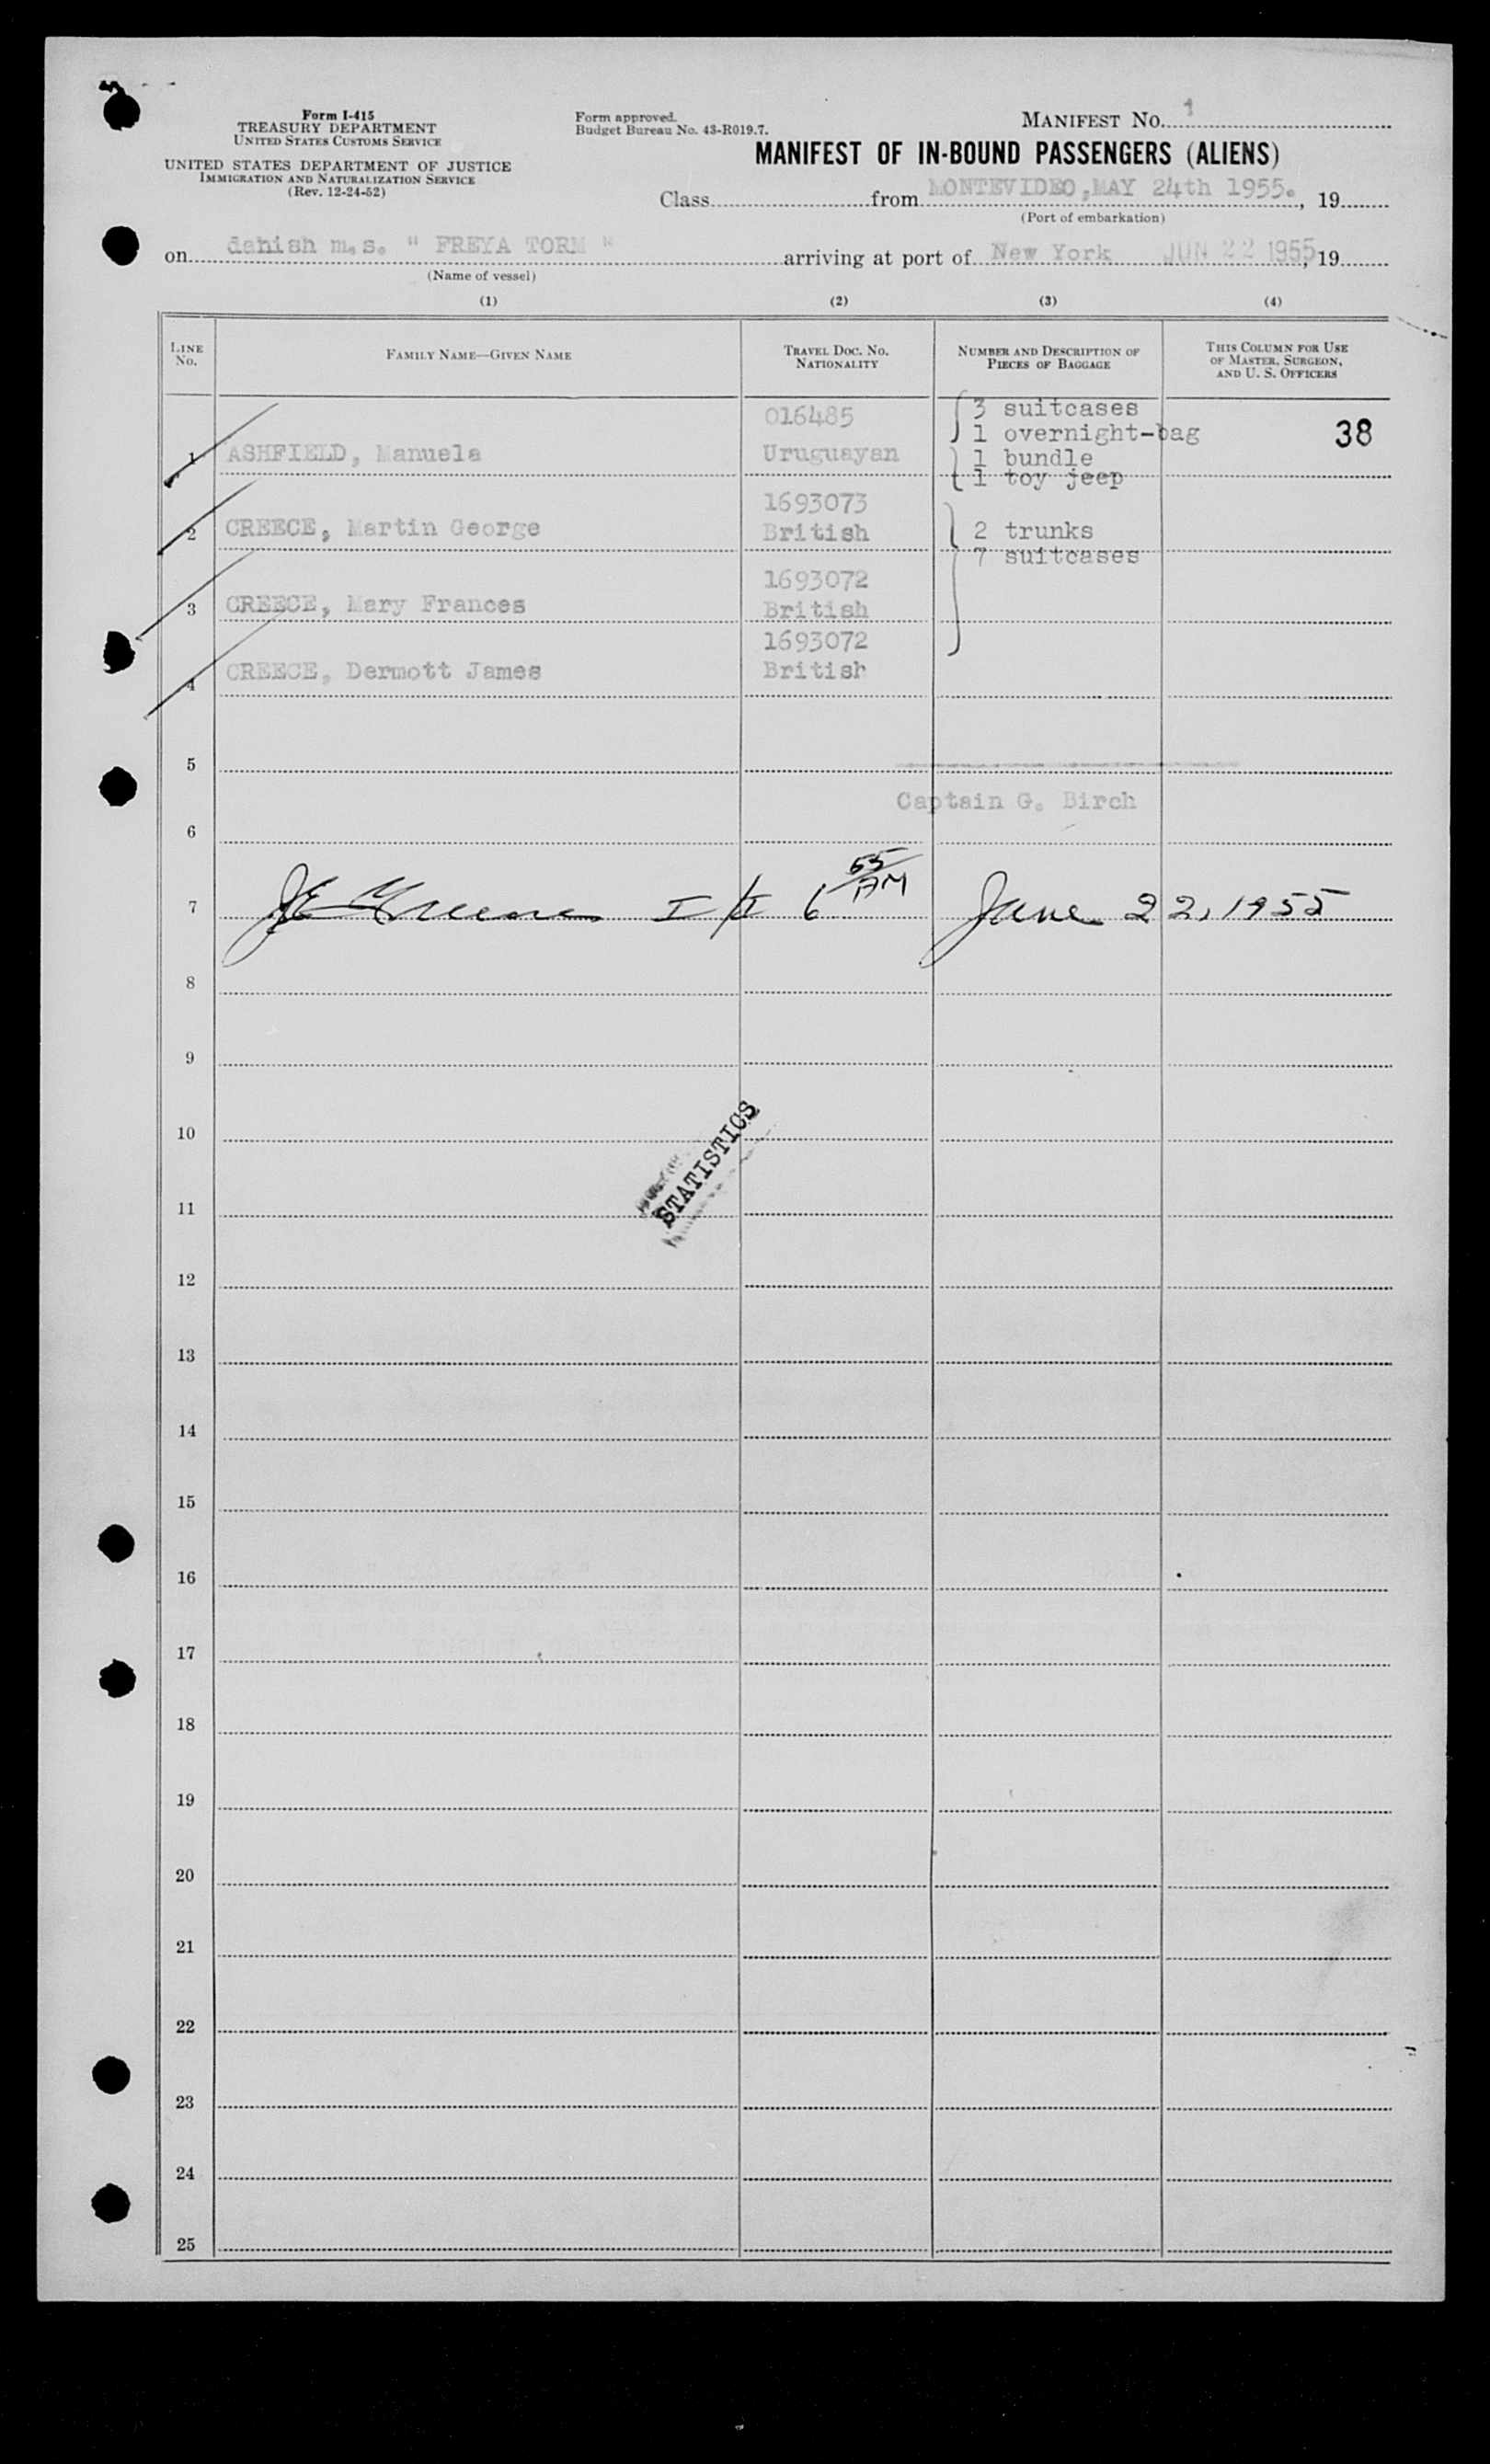 Form I-415
TREASURY DEPARTMENT
UNITED STATES CUSTOMS SERVICE
UNITED STATES DEPARTMENT OF JUSTICE
IMMIGRATION AND NATURALIZATION SERVICE
(Rev. 12-24-52)
Form approved.
Budget Bureau No. 43-R019.7.
MANIFEST NO. 1
MANIFEST OF IN-BOUND PASSENGERS (ALIENS)
Class from MONTEVIDEO, MAY 24th 1955. , 19
(Port of embarkation)
on danish m.s. " FREYA TORM " arriving at port of New York JUN 22 1955, 19
(Name of vessel)
(1) (2) (3) (4)
LINE NO.
FAMILY NAME—GIVEN NAME
TRAVEL DOC. NO.
NATIONALITY
NUMBER AND DESCRIPTION OF
PIECES OF BAGGAGE
THIS COLUMN FOR USE
OF MASTER, SURGEON,
AND U. S. OFFICERS
016485 3 suitcases
1 overnight-bag 38
1 ASHFIELD, Manuela Uruguayan 1 bundle
1 toy jeep
1693073
2 CREECE, Martin George British 2 trunks
7 suitcases
1693072
3 CREECE, Mary Frances British
1693072
4 CREECE, Dermott James British
5
Captain G. Birch
6
7 JE Greene I/I 6 55/AM June 22, 1955
8
9
10
STATISTICS
11
12
13
14
15
16
17
18
19
20
21
22
23
24
25